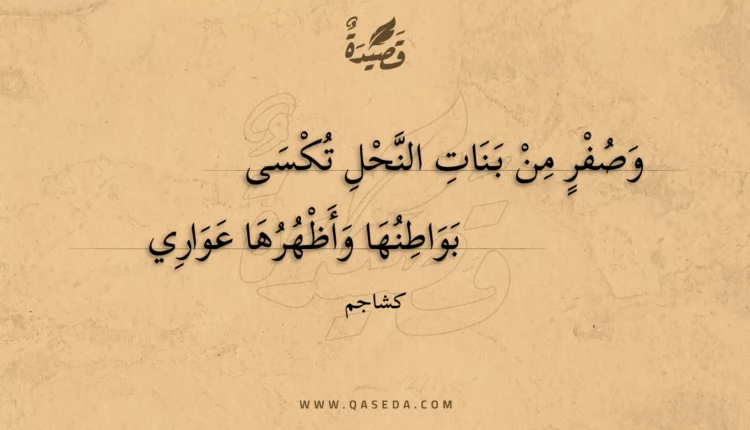 قَصِيْدَةٌ
وَصُفْرٍ مِنْ بَنَاتِ النَّحْلِ تُكْسَى
بَوَاطِنُهَا وَأَظْهُرُهَا عَوَارِي
كشاجم
WWW.QASEDA.COM